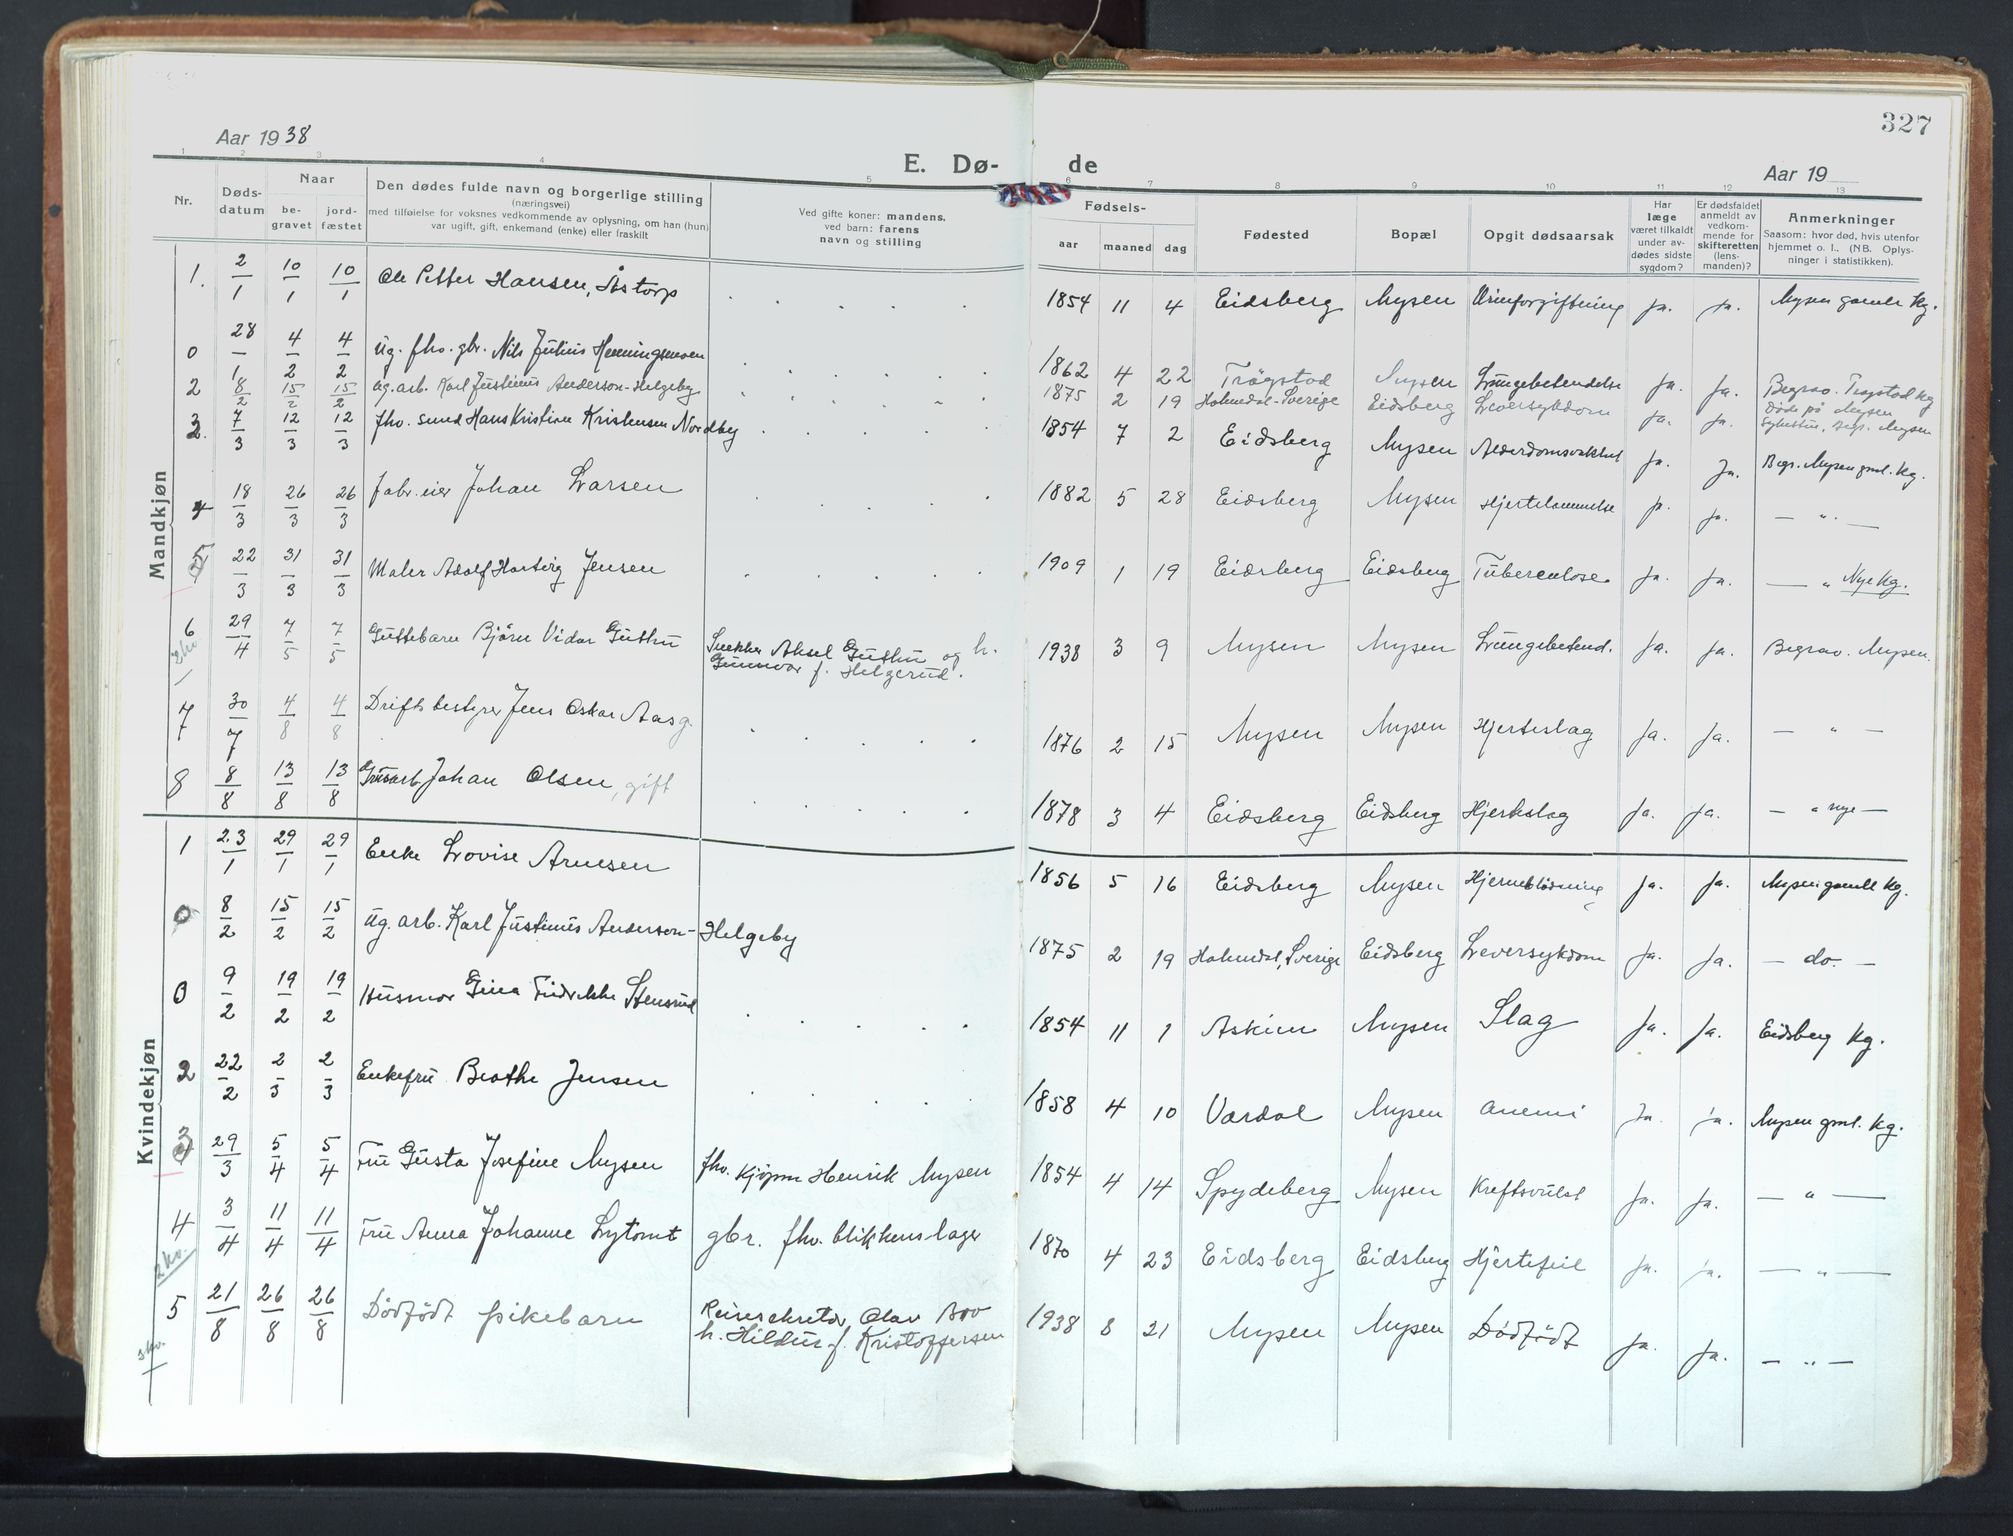 327
Aar 1938
E. Dø-
de
Aar 19
1 2 3 4 5 6 7 8 9 10 11 12 13
Nr.
Døds-
datum
Naar
be-
gravet
jord-
fæstet
Den dødes fulde navn og borgerlige stilling
(næringsvei)
med tilføielse for voksnes vedkommende av oplysning, om han (hun)
var ugift, gift, enkemand (enke) eller fraskilt
Ved gifte koner: mandens.
ved barn: farens
navn og stilling
Fødsels-
aar
maaned
dag
Fødested
Bopæl
Opgit dødsaarsak
Har
læge
været tilkaldt
under av-
dødes sidste
sygdom?
Er dødsfaldet
anmeldt av
vedkom-
mende for
skifteretten
(lens-
manden)?
Anmerkninger
Saasom: hvor død, hvis utenfor
hjemmet o. l.. (NB. Oplys-
ninger i statistikken).
Mandkjøn
1. 2/1 10/1 10/1 Ole Petter Hansen, Åstorp 1854 11 4 Eidsberg Mysen Urinforgiftning Ja. Ja. Mysen gamle kg.
0 28/1 4/2 4/2 Ug. fhv. gbr. Nils Julius Henningsmoen 1862 4 22 Trögstad Mysen Lungebetendelse Ja. Ja. Begrav. Trögstad kg
2 8/2 15/2 15/2 Ug. arb. Karl Justinus Anderson-Helgeby 1875 2 19 Holmdal-Sverige Eidsberg Leversykdom Ja. Ja. Døde på Mysen
Sykestue, begr. Mysen
3. 7/3 12/3 12/3 fhv. smed Hans Kristian Kristensen Nordby 1854 7 2 Eidsberg Mysen Alderdomsvakhet Ja. Ja. Begr. Mysen gml. kg.
4 18/3 26/3 26/3 Fabr. eier Johan Larsen 1882 5 28 Eidsberg Mysen Hjertelammelse Ja. Ja. — " —
5 22/3 31/3 31/3 Maler Adolf Hartvig Jensen 1909 1 19 Eidsberg Eidsberg Tuberculose Ja. Ja. — " Nye kg.
6 29/4 7/5 7/5 Guttebarn Björn Vidar Guthu Snekker Aksel Guthu og h.
Gunnvor f. Helgerud. 1938 3 9 Mysen Mysen Lungebetend. Ja. Ja. Begrav. Mysen.
7 30/7 4/8 4/8 Driftsbestyrer Jens Oskar Aas g. 1876 2 15 Mysen Mysen Hjerteslag Ja. Ja. — " —
8 8/8 13/8 13/8 Johan Olsen, gift 1878 3 4 Eidsberg Eidsberg Hjerteslag Ja. Ja. — " nye —
Kvindekjøn
1 23/1 29/1 29/1 Enke Lovise Arnesen 1856 5 16 Eidsberg Mysen Hjerneblödning Ja. Ja. Mysen gamle kg.
0 8/2 15/2 15/2 Ug. arb. Karl Justinus Anderson-Helgeby 1875 2 19 Holmdal, Sverige Eidsberg Leversykdom Ja. Ja. — do. —
0 9/2 19/2 19/2 Husmor Gina Fredrikke Stensrud 1854 11 1 Askim Mysen Slag Ja. Ja. Eidsberg kg.
2 22/2 2/3 2/3 Enkefru Beathe Jensen 1858 4 10 Vardal Mysen Anemi Ja. Ja. Mysen gml. kg.
3 29/3 5/4 5/4 Fru Gusta Josefine Mysen fhv. kjöpm Henrik Mysen 1854 4 14 Spydeberg Mysen Kreftsvulst Ja. Ja. — " —
4 3/4 11/4 11/4 Fru Anna Johanne Lytomt gbr. fhv. blikkenslager 1870 4 23 Eidsberg Eidsberg Hjertefeil Ja. Ja. — " —
5 21/8 26/8 26/8 Dödfödt pikebarn Reisesekretær, Olav Boo
h. Hildur f. Kristoffersen 1938 8 21 Mysen Mysen Dödfödt Ja. Ja. — " —